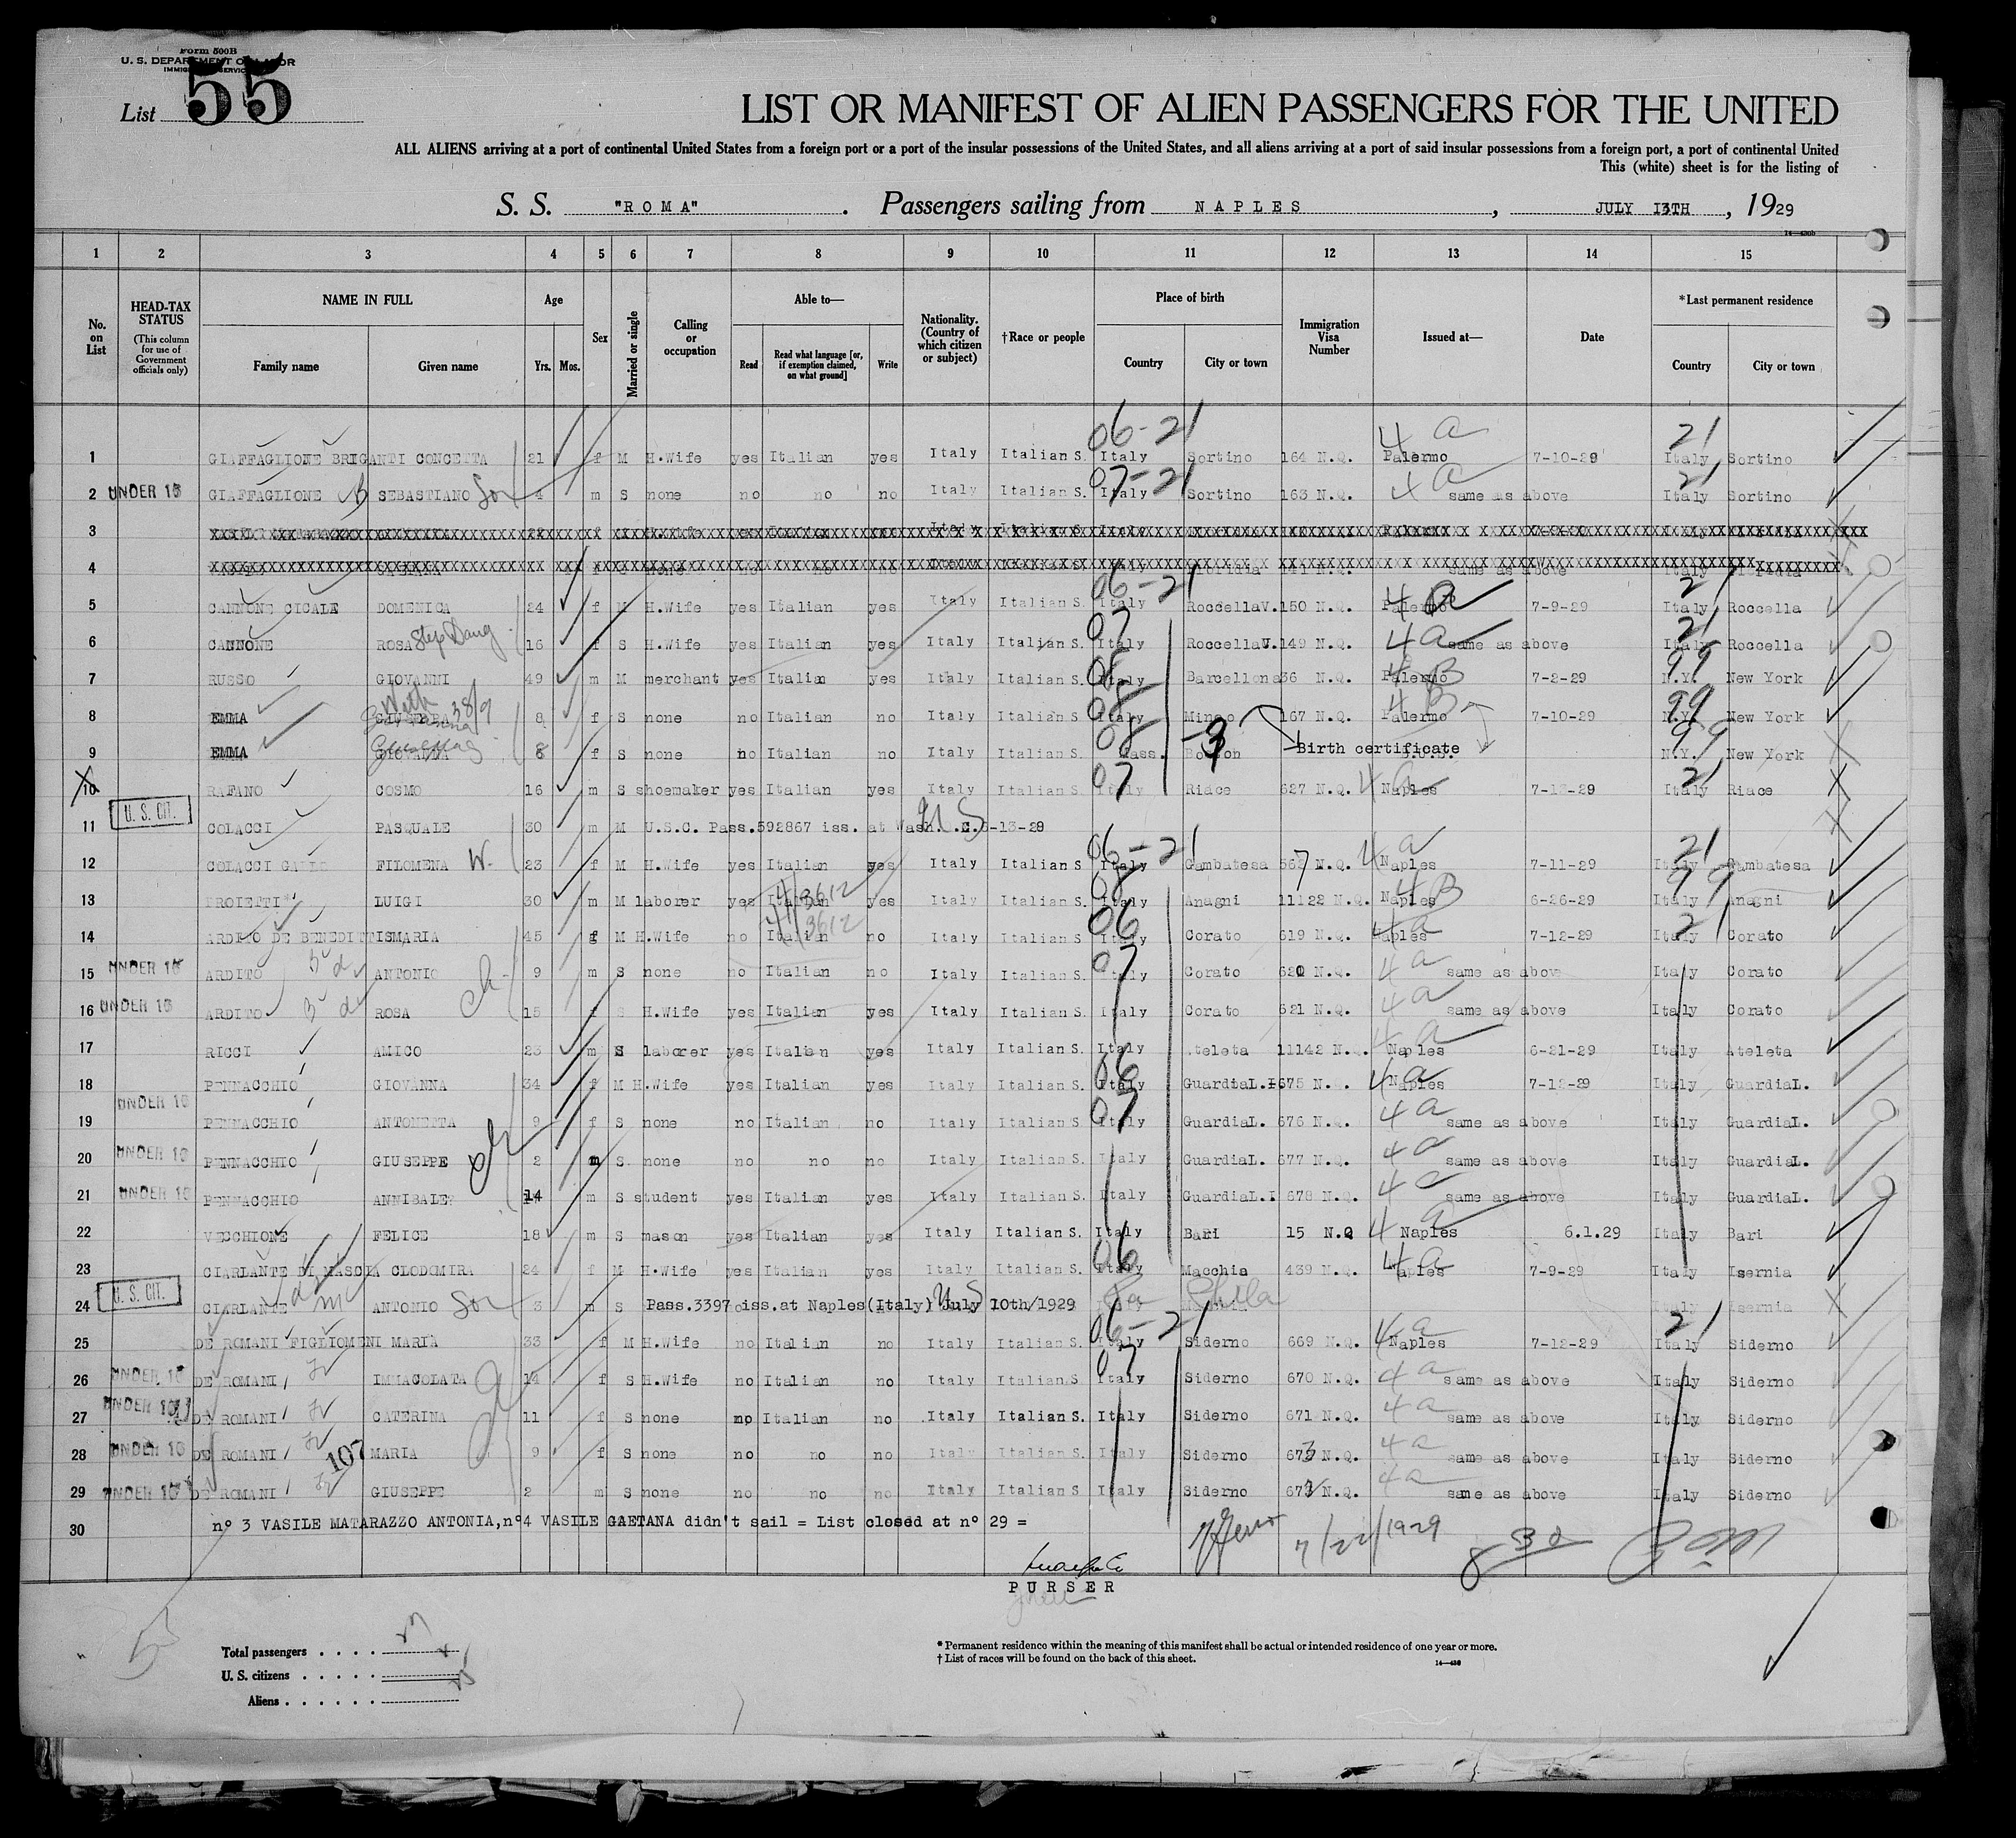 Form 500B
U. S. DEPARTMENT OF LABOR
IMMIGRATION SERVICE
List 55
LIST OR MANIFEST OF ALIEN PASSENGERS FOR THE UNITED
ALL ALIENS arriving at a port of continental United States from a foreign port or a port of the insular possessions of the United States, and all aliens arriving at a port of said insular possessions from a foreign port, a port of continental United
This (white) sheet is for the listing of
S. S. "ROMA" . Passengers sailing from NAPLES , JULY 13TH , 1929
1 2 3 4 5 6 7 8 9 10 11 12 13 14 15
No. on List
HEAD-TAX STATUS (This column for use of Government officials only)
NAME IN FULL Family name Given name
Age Yrs. Mos.
Sex
Married or single
Calling or occupation
Able to— Read Read what language [or, if exemption claimed, on what ground] Write
Nationality. (Country of which citizen or subject)
†Race or people
Place of birth Country City or town
Immigration Visa Number
Issued at—
Date
*Last permanent residence Country City or town
06-21 4a 21
1 GIAFFAGLIONE BRIGANTI CONCETTA 21 f M H.Wife yes Italian yes Italy Italian S. Italy Sortino 164 N.Q. Palermo 7-10-29 Italy Sortino
07-21 4a 21
2 UNDER 16 GIAFFAGLIONE B SEBASTIANO Son 4 m S none no no no Italy Italian S. Italy Sortino 163 N.Q. same as above Italy Sortino
3
4
06-21 4a 21
5 CANNONE CICALE DOMENICA 24 f M H.Wife yes Italian yes Italy Italian S. Italy RoccellaV. 150 N.Q. Palermo 7-9-29 Italy Roccella
6 CANNONE ROSA Step Daug 16 f S H.Wife yes Italian yes Italy Italian S. 07 Italy RoccellaV. 149 N.Q. 4a same as above 21 Italy Roccella
7 RUSSO GIOVANNI 49 m M merchant yes Italian yes Italy Italian S. 08 Italy Barcellona 36 N.Q. 4B Palermo 7-2-29 99 N.Y. New York
8 EMMA GIUSEPPA 8 f S none no Italian no Italy Italian S. 08 Italy Mineo 167 N.Q. 4B Palermo 7-10-29 99 N.Y. New York
9 EMMA GIOVANNA 8 f S none no Italian no Italy Italian S. 08 Mass. Boston Birth certificate 99 N.Y. New York
10 RAFANO COSMO 16 m S shoemaker yes Italian yes Italy Italian S. 07 Italy Riace 627 N.Q. 4a Naples 7-12-29 21 Italy Riace
11 U. S. CIT. COLACCI PASQUALE 30 m M U.S.C. Pass.592867 iss. at Wash. US
12 COLACCI GALLO FILOMENA W. 23 f M H.Wife yes Italian yes Italy Italian S 06-21 Italy Gambatesa N.Q. 4a Naples 7-11-29 21 Italy Gambatesa
13 PROIETTI LUIGI 30 m M laborer yes Italian yes Italy Italian S 08 Italy Anagni 11122 N.Q. 4B Naples 6-26-29 99 Italy Anagni
14 ARDITO DE BENEDITTIS MARIA 45 f M H.Wife no Italian no Italy Italian S 06 Italy Corato 619 N.Q. 4a Naples 7-12-29 21 Italy Corato
15 UNDER 16 ARDITO ANTONIO 9 m S none no Italian no Italy Italian S. 07 Italy Corato 620 N.Q. 4a same as above Italy Corato
16 UNDER 16 ARDITO ROSA 15 f S H.Wife yes Italian yes Italy Italian S. Italy Corato 621 N.Q. 4a same as above Italy Corato
17 RICCI AMICO 23 m S laborer yes Italian yes Italy Italian S. Italy Ateleta 11142 N.Q. 4a Naples 6-21-29 Italy Ateleta
18 PENNACCHIO GIOVANNA 34 f M H.Wife yes Italian yes Italy Italian S. 06 Italy GuardiaL. 675 N. 4a Naples 7-12-29 Italy GuardiaL.
19 UNDER 16 PENNACCHIO ANTONETTA 9 f S none no Italian no Italy Italian S. 07 Italy GuardiaL. 676 N.Q. 4a same as above Italy GuardiaL.
20 UNDER 16 PENNACCHIO GIUSEPPE 2 m S none no no no Italy Italian S. Italy GuardiaL. 677 N.Q. 4a same as above Italy GuardiaL.
21 UNDER 16 PENNACCHIO ANNIBALE 14 m S student yes Italian yes Italy Italian S. Italy GuardiaL.I 678 N.Q. 4a same as above Italy GuardiaL.
22 VECCHIONE FELICE 18 m S mason yes Italian yes Italy Italian S. Italy Bari 15 N.Q 4a Naples 6.1.29 Italy Bari
23 CIARLANTE DI MASCIA CLODOMIRA 24 f M H.Wife yes Italian yes Italy Italian S. 06 Italy Macchia 439 N.Q. 4a Naples 7-9-29 Italy Isernia
24 U. S. CIT. CIARLANTE ANTONIO Son 3 m S Pass.3397 iss.at Naples(Italy) July 10th/1929 US Pa Phila Italy Isernia
25 DE ROMANI FIGLIOMENI MARIA 33 f M H.Wife no Italian no Italy Italian S. 06-21 Italy Siderno 669 N.Q. 4a Naples 7-12-29 21 Italy Siderno
26 UNDER 16 DE ROMANI IMMACOLATA 14 f S H.Wife no Italian no Italy Italian S 07 Italy Siderno 670 N.Q. 4a same as above Italy Siderno
27 UNDER 16 DE ROMANI CATERINA 11 f S none no Italian no Italy Italian S. Italy Siderno 671 N.Q. 4a same as above Italy Siderno
28 UNDER 16 DE ROMANI 107 MARIA 9 f S none no no no Italy Italian S. Italy Siderno 673 N.Q. 4a same as above Italy Siderno
29 UNDER 16 DE ROMANI GIUSEPPE 2 m S none no no no Italy Italian S Italy Siderno 672 N.Q. 4a same as above Italy Siderno
30 n° 3 VASILE MATARAZZO ANTONIA,n°4 VASILE GAETANA didn't sail = List closed at n° 29 =
7/22/1929
PURSER
Total passengers . . . .
U. S. citizens . . . . .
Aliens . . . . . .
* Permanent residence within the meaning of this manifest shall be actual or intended residence of one year or more.
† List of races will be found on the back of this sheet.